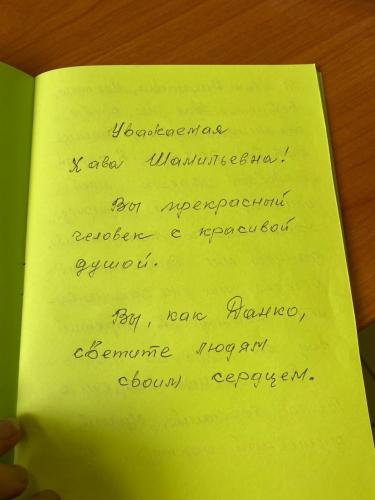 Уважаемая
Хава Шамильевна!
Вы прекрасный
человек с красивой
душой.
Вы, как Данко,
светите людям
своим сердцем.